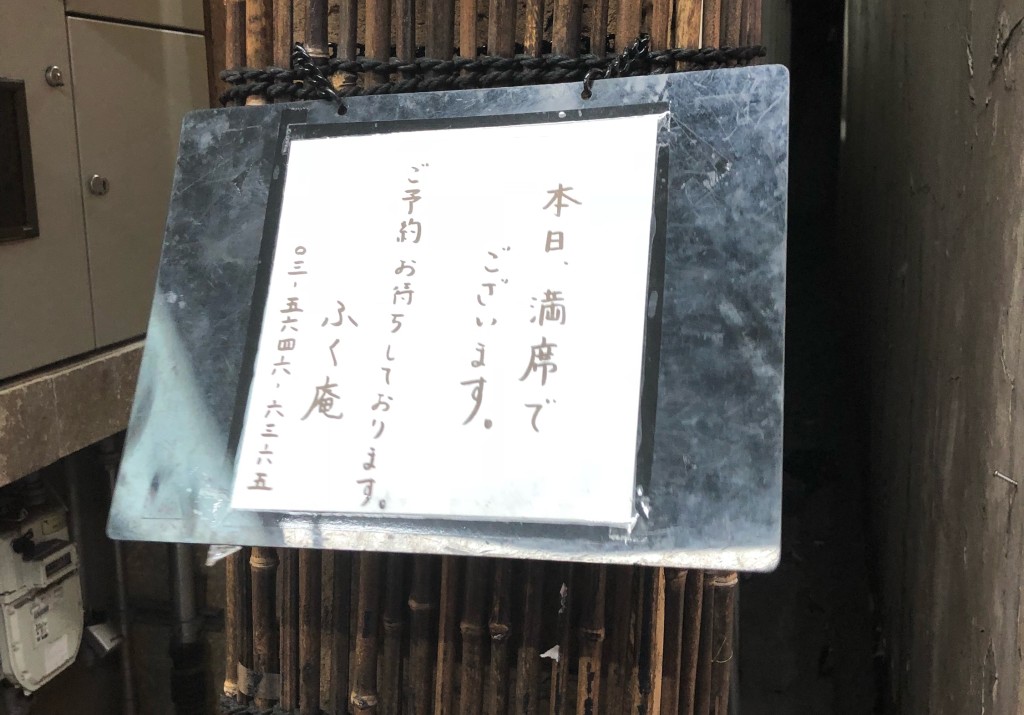 本日、満席で
ございます。
ご予約お待ちしております。
ふく庵
〇三-五六四六-六三六五